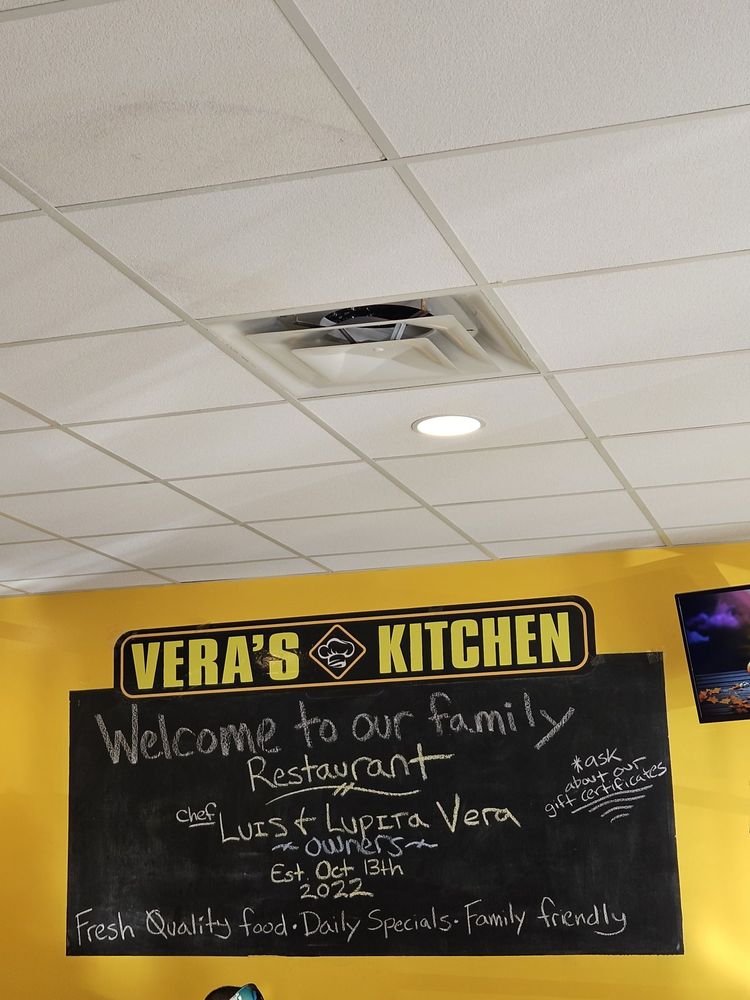 VERA'S KITCHEN
Welcome to our family
Restaurant
*ask
about our
gift certificates
Chef Luis & Lupita Vera
~ owners ~
Est. Oct 13th
2022
Fresh Quality food · Daily Specials · Family friendly